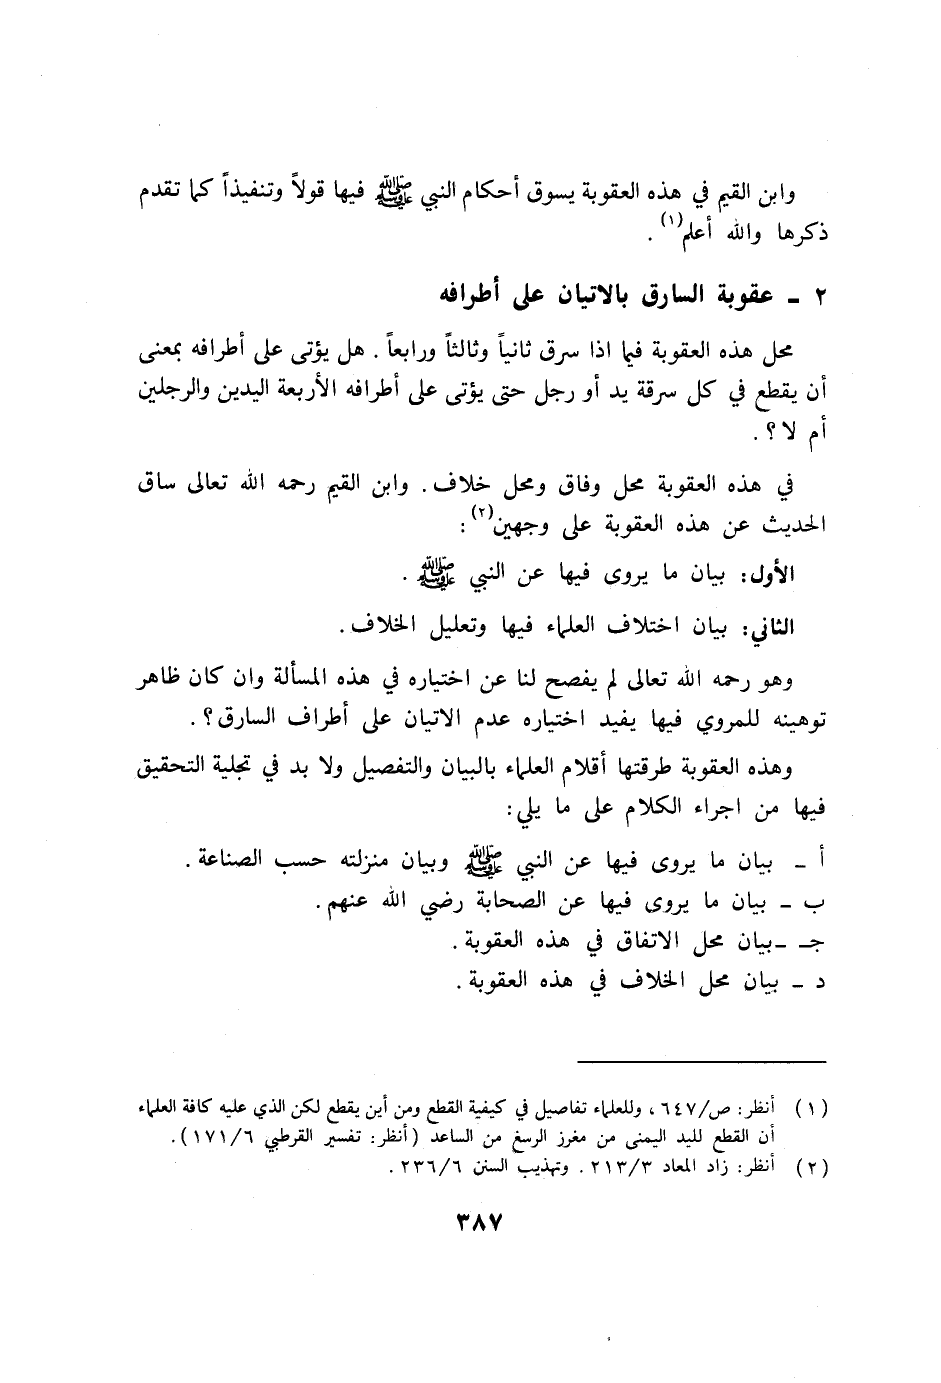 وابن القيم في هذه العقوبة يسوق أحكام النبي ﷺ فيها قولاً وتنفيذاً كما تقدم
ذكرها والله أعلم(١) .
٢ ـ عقوبة السارق بالاتيان على أطرافه
محل هذه العقوبة فيما اذا سرق ثانياً وثالثاً ورابعاً . هل يؤتى على أطرافه بمعنى
أن يقطع في كل سرقة يد أو رجل حتى يؤتى على أطرافه الأربعة اليدين والرجلين
أم لا؟ .
في هذه العقوبة محل وفاق ومحل خلاف . وابن القيم رحمه الله تعالى ساق
الحديث عن هذه العقوبة على وجهين(٢) :
الأول: بيان ما يروى فيها عن النبي ﷺ .
الثاني: بيان اختلاف العلماء فيها وتعليل الخلاف .
وهو رحمه الله تعالى لم يفصح لنا عن اختياره في هذه المسألة وان كان ظاهر
توهينه للمروي فيها يفيد اختياره عدم الاتيان على أطراف السارق؟ .
وهذه العقوبة طرقتها أقلام العلماء بالبيان والتفصيل ولا بد في تجلية التحقيق
فيها من اجراء الكلام على ما يلي:
أ ـ بيان ما يروى فيها عن النبي ﷺ وبيان منزلته حسب الصناعة .
ب ـ بيان ما يروى فيها عن الصحابة رضي الله عنهم .
جـ ـ بيان محل الاتفاق في هذه العقوبة .
د ـ بيان محل الخلاف في هذه العقوبة .
(١) أنظر: ص/٦٤٧ ، وللعلماء تفاصيل في كيفية القطع ومن أين يقطع لكن الذي عليه كافة العلماء
أن القطع لليد اليمنى من مغرز الرسغ من الساعد (أنظر: تفسير القرطبي ١٧١/٦) .
(٢) أنظر: زاد المعاد ٢١٣/٣ . وتهذيب السنن ٢٣٦/٦ .
٣٨٧